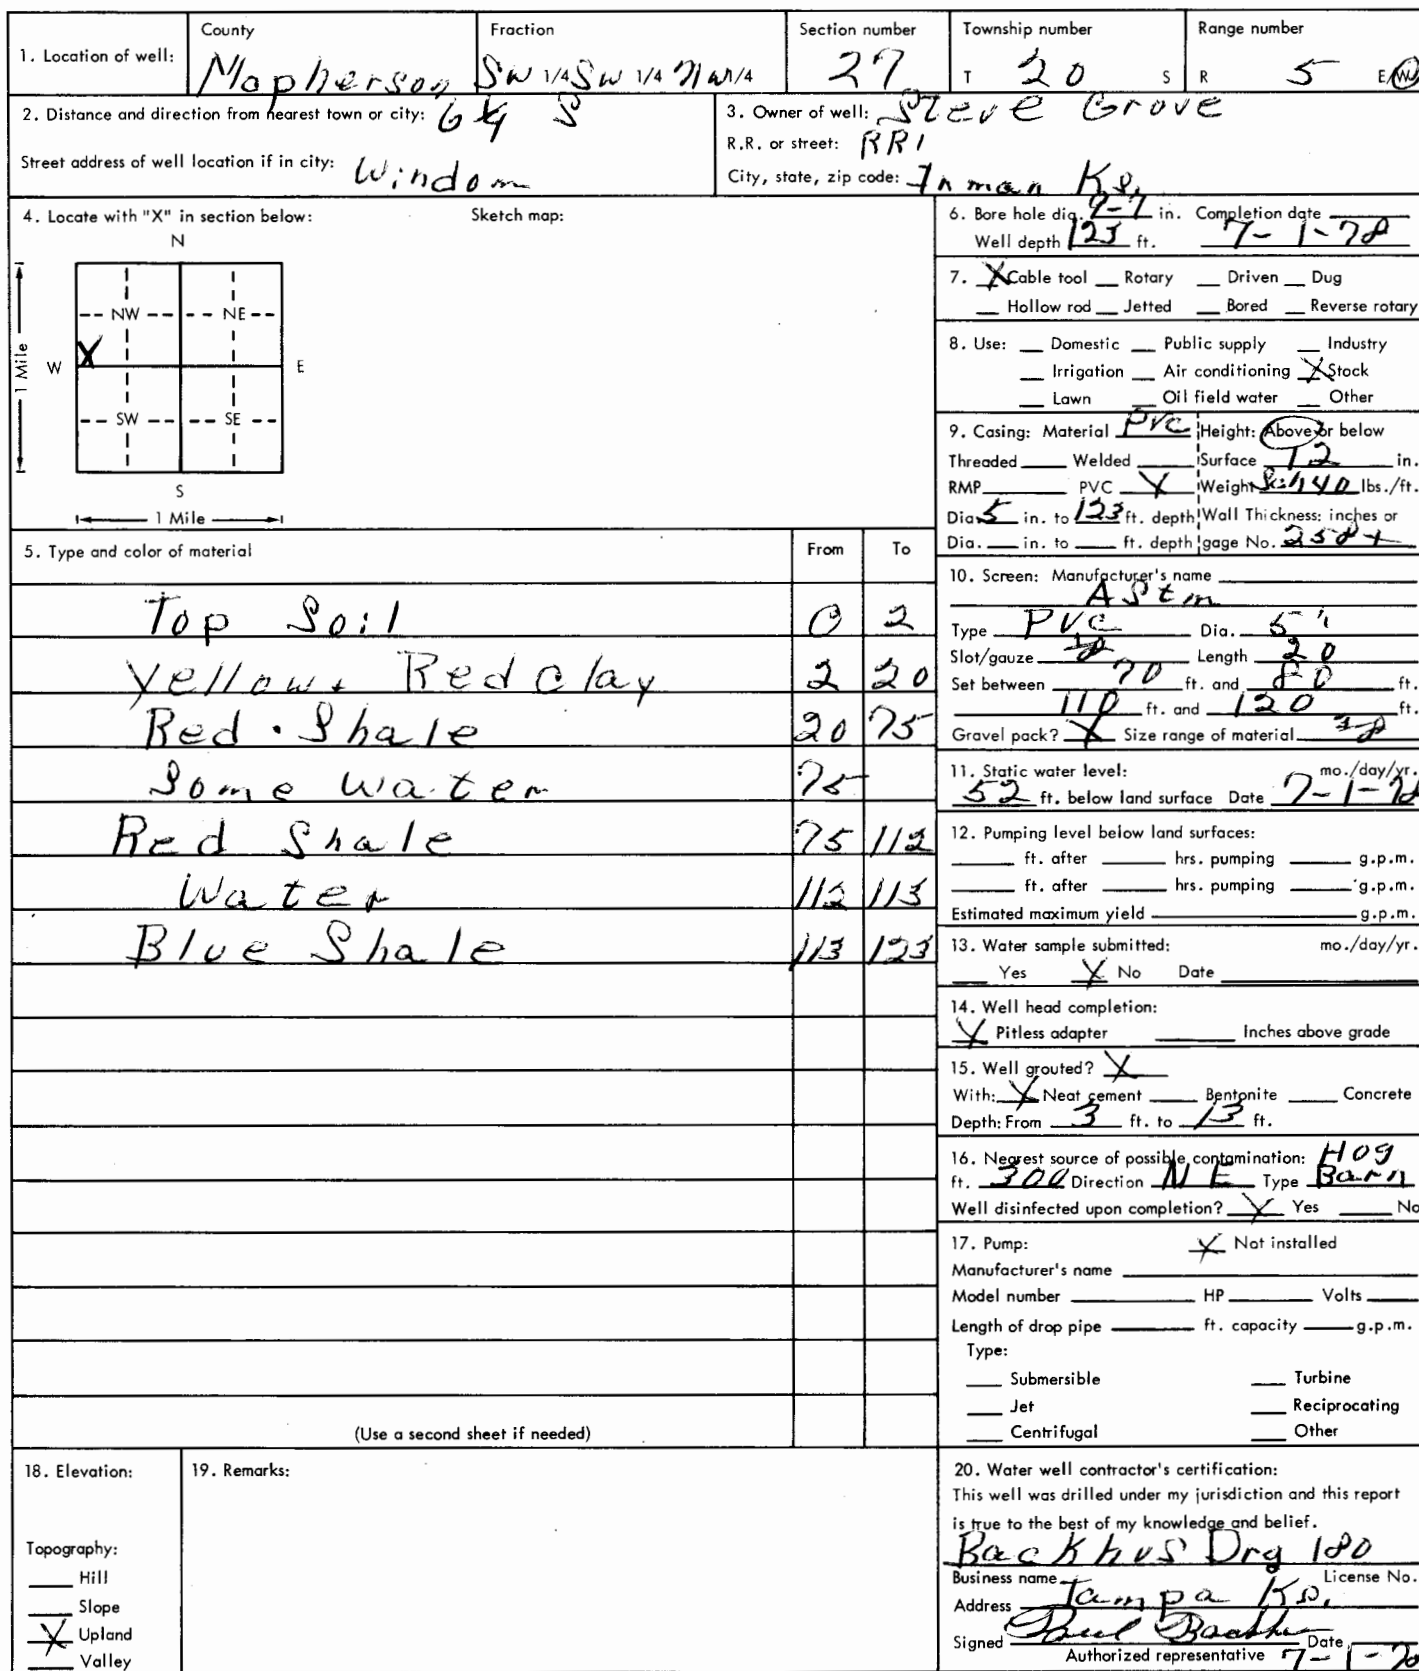 1. Location of well:
County
Mcpherson
Fraction
SW 1/4 SW 1/4 NW 1/4
Section number
27
Township number
T 20 S
Range number
R 5 E/W
2. Distance and direction from nearest town or city: 6 1/4 S
Street address of well location if in city: Windom
3. Owner of well: Steve Grove
R.R. or street: RR1
City, state, zip code: Inman Ks.
4. Locate with "X" in section below:
Sketch map:
N
NW NE
1 Mile
W X E
SW SE
S
1 Mile
5. Type and color of material From To
Top Soil 0 2
Yellow + Red clay 2 20
Red . Shale 20 75
Some Water 75
Red Shale 75 112
Water 112 113
Blue Shale 113 123
(Use a second sheet if needed)
6. Bore hole dia. 7-7 in. Completion date
Well depth 123 ft. 7-1-78
7. X Cable tool Rotary Driven Dug
Hollow rod Jetted Bored Reverse rotary
8. Use: Domestic Public supply Industry
Irrigation Air conditioning X Stock
Lawn Oil field water Other
9. Casing: Material PVC Height: Above or below
Threaded Welded Surface 12 in.
RMP PVC X Weight Sch 40 lbs./ft.
Dia. 5 in. to 123 ft. depth Wall Thickness: inches or
Dia. in. to ft. depth gage No. 258+
10. Screen: Manufacturer's name
AStm
Type PVC Dia. 5"
Slot/gauze Length 20
Set between 70 ft. and 80 ft.
110 ft. and 120 ft.
Gravel pack? X Size range of material
11. Static water level: mo./day/yr.
52 ft. below land surface Date 7-1-78
12. Pumping level below land surfaces:
ft. after hrs. pumping g.p.m.
ft. after hrs. pumping g.p.m.
Estimated maximum yield g.p.m.
13. Water sample submitted: mo./day/yr.
Yes X No Date
14. Well head completion:
X Pitless adapter Inches above grade
15. Well grouted? X
With: X Neat cement Bentonite Concrete
Depth: From 3 ft. to 13 ft.
16. Nearest source of possible contamination: Hog
ft. 300 Direction NE Type Barn
Well disinfected upon completion? X Yes No
17. Pump: X Not installed
Manufacturer's name
Model number HP Volts
Length of drop pipe ft. capacity g.p.m.
Type:
Submersible Turbine
Jet Reciprocating
Centrifugal Other
18. Elevation:
Topography:
Hill
Slope
X Upland
Valley
19. Remarks:
20. Water well contractor's certification:
This well was drilled under my jurisdiction and this report
is true to the best of my knowledge and belief.
Backhus Drg 180
Business name License No.
Address Tampa Ks.
Signed Paul Backhus Date
Authorized representative 7-1-78